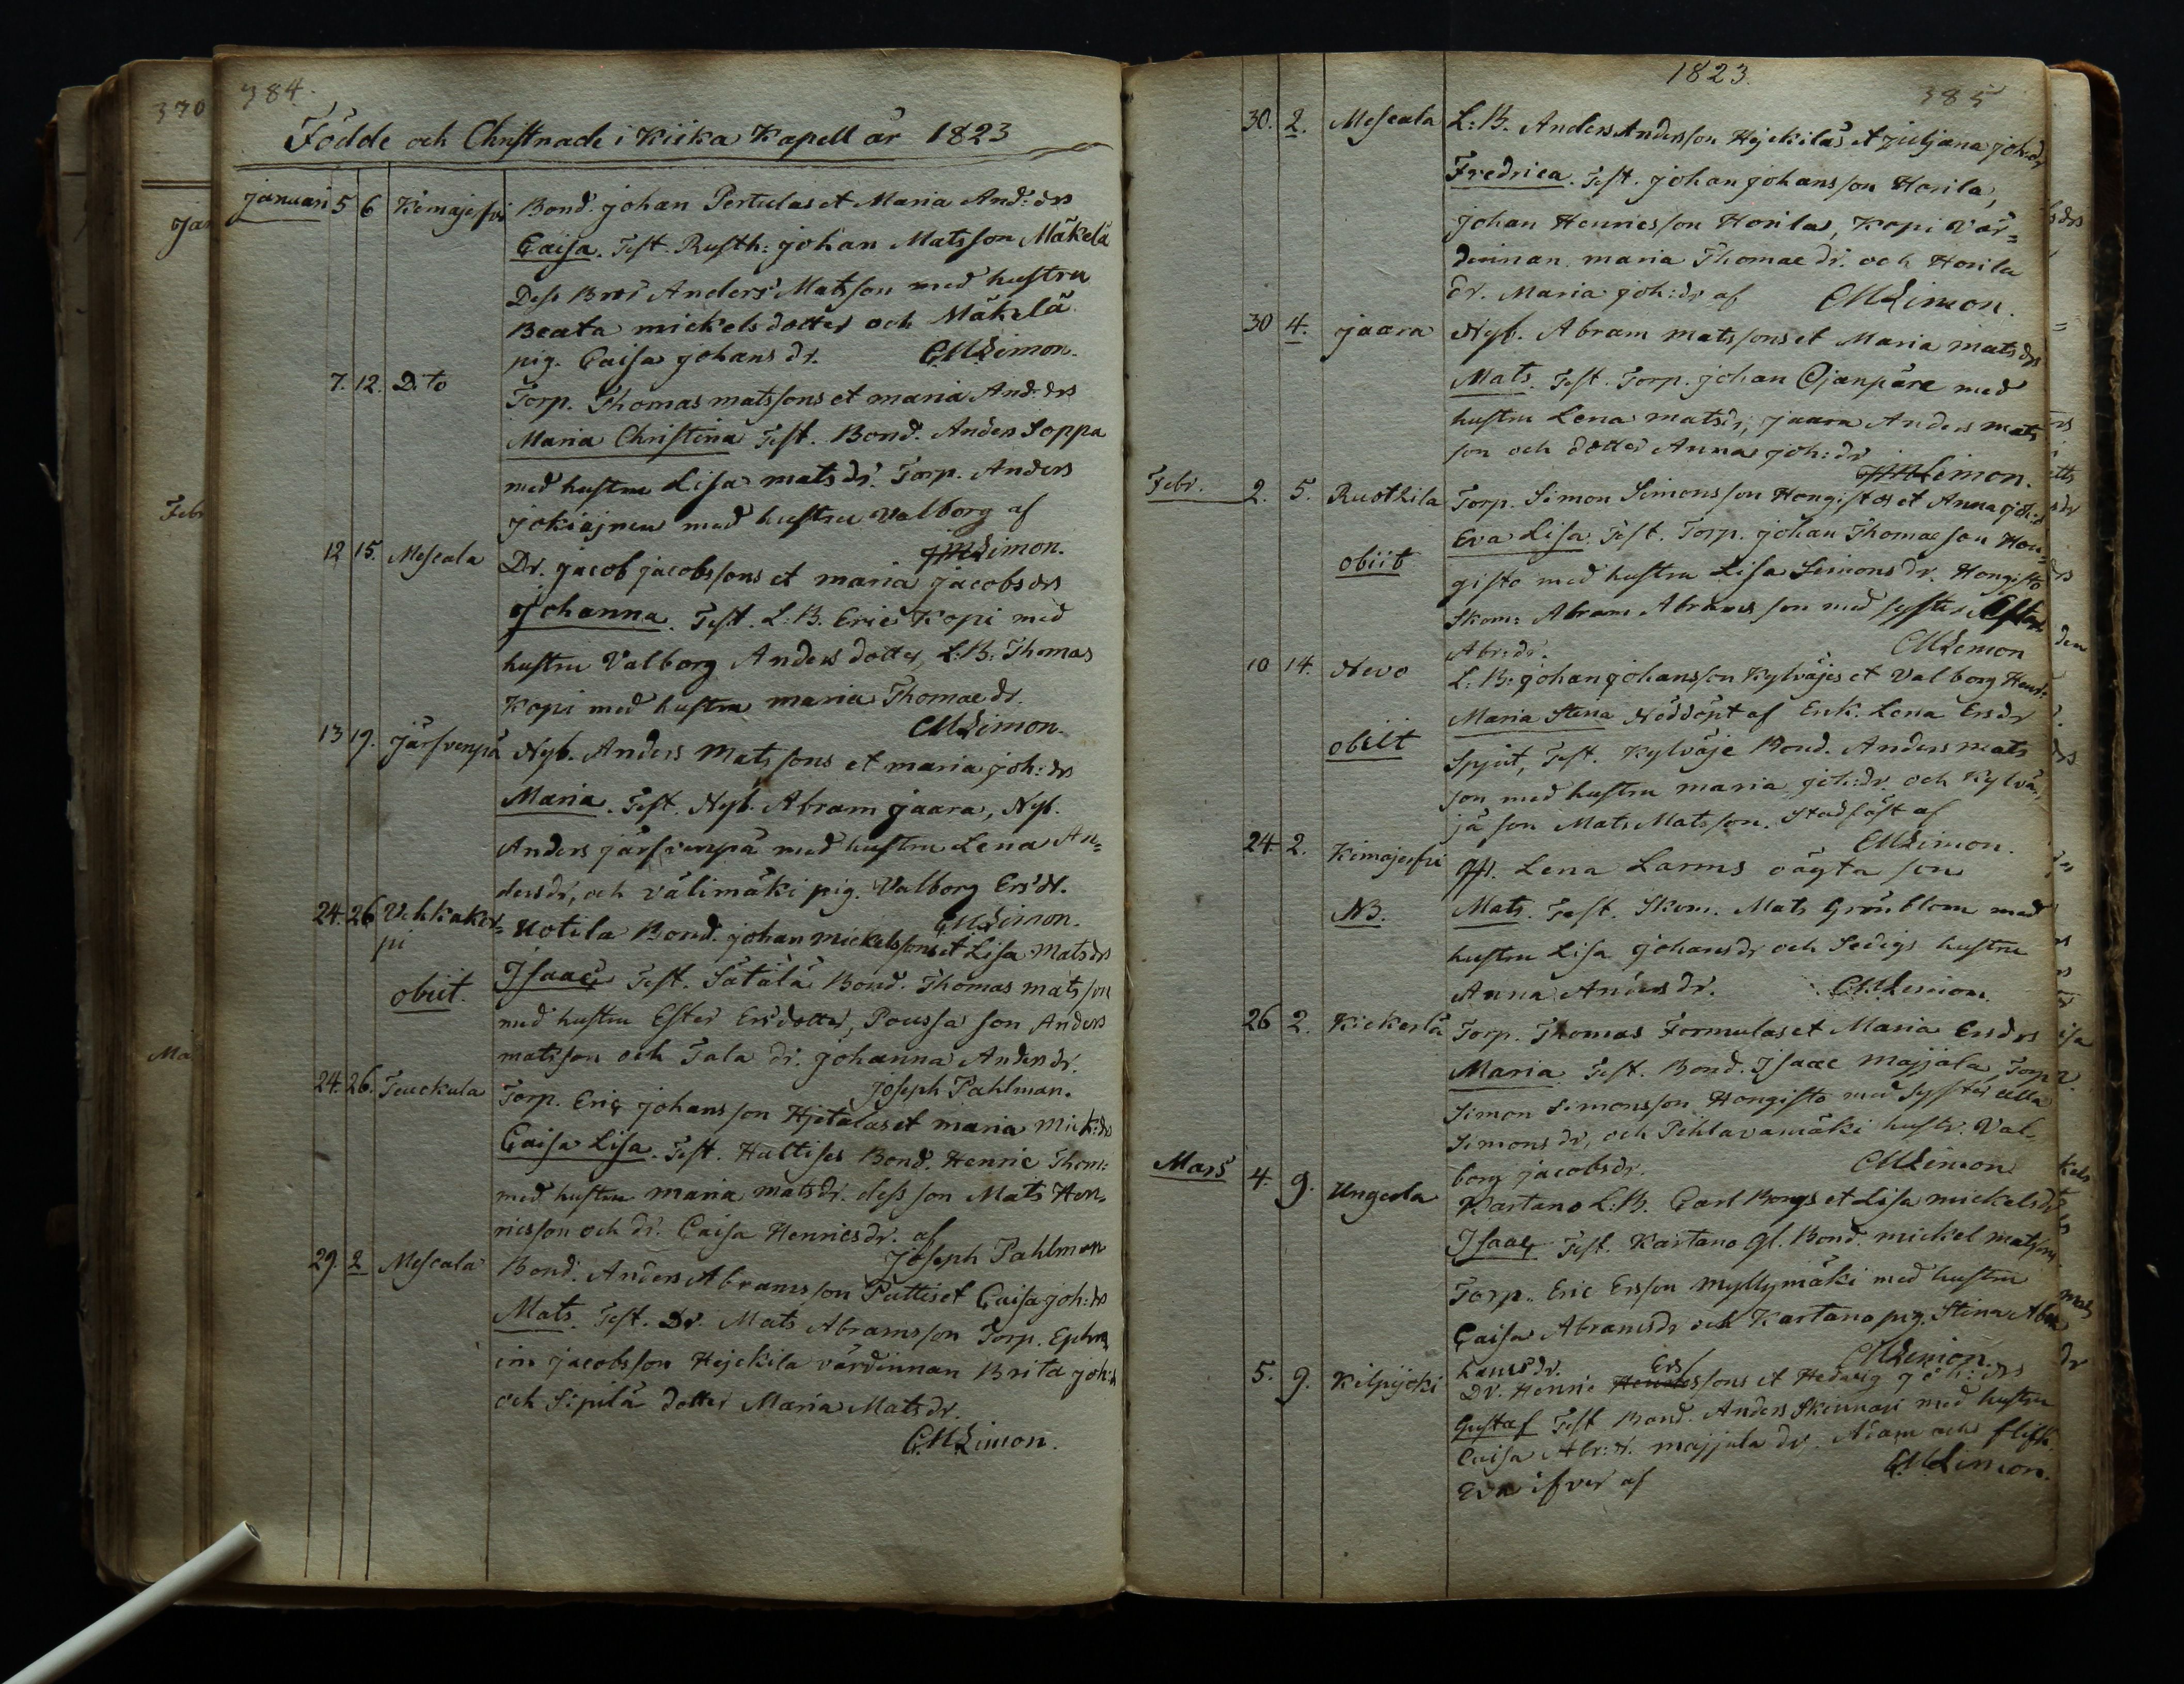 384.
Födde och Christnade i Kiika Kapell år 1823
Januari 5 6 Kimajerfvi Bond. Johan Pertulas et Maria And: drs
Caisa. Test. Rusth: Johan Matsson Mäkelä
Dess Bror Anders Matsson med hustru
Beata Mickelsdotter och Mäkelä
pig. Caisa Johans dr. CMLimon.
7. 12. Dito Torp. Thomas Matssons et Maria And: drs
Maria Christina Test. Bond. Anders Soppa
med hustru Lisa Mats dr. Torp. Anders
Jokiäjnen med hustru Valborg af
CMLimon.
12 15. Mescala Dr. Jacob Jacobssons et Maria Jacobs drs
Johanna. Test. L:B. Eric Kopi med
hustru Valborg Anders dotter, L:B: Thomas
Kopi med hustru Maria Thomae dr.
CMLimon.
13 19. Järfvenpä Nyb. Anders Matssons et Maria Joh: drs
Maria. Test. Nyb. Abram Jaara, Nyb.
Anders Järfvenpä med hustru Lena An=
dersdr, och Välimäki pig. Valborg Ers dr.
CMLimon.
24. 26 Vehkakor= Uotila Bond. Johan Mickelssons et Lisa Mats drs
pi
obiit. Isaac Test. Sätälä Bond. Thomas Matsson
med hustru Ester Ers dotter, Poussa son Anders
Matsson och Tala dr. Johanna Anders dr.
Joseph Pahlman.
24. 26. Teuckula Torp. Eric Johansson Hjetalas et Maria Mick: drs
Caisa Lisa. Test. Hattises Bond. Henric Thom:
med hustru Maria Mats dr. dess son Mats Hen=
ricsson och dr. Caisa Henricsdr. af
Joseph Pahlman
29. 2 Mescala Bond. Anders Abramsson Puttis et Caisa Joh: drs
Mats. Test. Dr. Mats Abramsson Torp. Ephra
im Jacobsson Hejckila värdinnan Brita Joh: dr
och Sipilä dotter Maria Mats dr.
CMLimon.
1823.
385
30. 2. Mescala L:B. Anders Andersson Hejckilas et Juljana Joh: dr
Fredrica. Test. Johan Johansson Horila,
Johan Henricsson Horila, Kopi Vär=
dinnan Maria Thomae dr. och Horila
dr. Maria Joh: dr af CMLimon.
30 4. Jaara Nyb. Abram Matssons et Maria Mats drs
Mats. Test. Torp. Johan Ojanpäre med
hustru Lena Matsdr, Jaara Anders Mats
son och dotter Anna Joh: dr
CMLimon.
Febr. 2. 5. Ruotzila Torp. Simon Simonsson Hongistos et Anna Joh: d
obiit Eva Lisa. Test. Torp. Johan Thomaeson Hon=
gisto med hustru Lisa Simons dr. Hongisto
Skom: Abram Abramsson med syster
Abr: dr. CMLimon
10 14. Nevo L:B: Johan Johansson Kylväjes et Valborg Henr:
obiit Maria Stina Nöddöpt af Enk. Lena Ersdr
Spjut, Test. Kylväje Bond. Anders Mats
son med hustru Maria Joh: dr. och Kylvä=
jä son Mats Matsson. Stadfäst af
CMLimon.
24. 2. Kimajerfvi Lena Larms oägta son
NB. Mats. Test. Skom. Mats Grönblom med
hustru Lisa Johansdr och Sedigs hustru
Anna Anders dr. CMLimon.
26 2. Kickerlä Torp. Thomas Formulas et Maria Ers drs
Maria Test. Bond. Isaac Majjala, Torp
Simon Simonsson Hongisto med Syster Ulla
Simons dr, och Pihlavamäki hustr. Val=
borg Jacobsdr. CMLimon
Mars 4. 9. Ungerla Kartano L:B. Carl Bongs et Lisa Mickelsdr
Isaac Test. Kartano Gl. Bond. Mickel Matsson,
Torp. Eric Ersson Myllymäki med hustru
Caisa Abramsdr och Kartano pig. Stina Abra
hamsdr. CMLimon.
5. 9. Kilpijoki Dr. Henric Ers ssons et Hedvig Joh: drs
Gustaf Test Bond. Anders Skinnari med hustru
Caisa Abr: dr. Majjala dr. Adam och flick
Eva ifver af CMLimon.